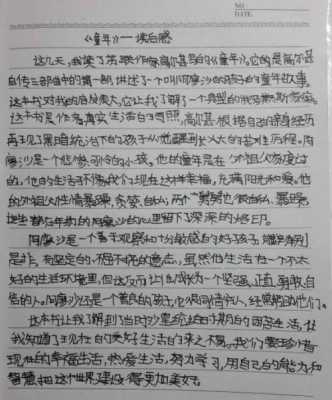 NO.
DATE.
《童年》——读后感
这几天,我读了苏联作家高尔基写的《童年》,它的是高尔基
自传三部曲中的第一部,讲述了一个叫阿廖沙的孩子的童年故事。
这本书对我的启发很大,它让我了解了一个典型的俄罗斯家庭。
这本书是作者真实生活的写照,高尔基根据自己的亲身经历
再现了黑暗统治下的孩子从觉醒到长大的苦难历程。阿
廖沙是一个悲惨可怜的小孩。他的童年是在外祖父家度过
的,他的生活不像我们现在这样幸福,充满阳光和爱。他
的外祖父性情暴躁、贪婪自私,两个舅舅也很自私、粗暴,
这些都在年幼的阿廖沙的心里留下了深深的烙印。
阿廖沙是一个善于观察和十分敏感的好孩子,能明辨
是非,有坚定的、倔强不屈的意志,虽然他生活在一个不太
好的生活环境里,但这反而让他成长为一个坚强、正直、勇敢、自
信的人。阿廖沙还是一个善良的孩子,它很同情穷人,经常帮助他们。
这本书让我了解到当时沙皇统治时期的困苦生活,让
我知道了现在的美好生活的来之不易。我们要珍惜
现在的幸福生活,热爱生活,努力学习,用自己的能力和
智慧把这个世界建设得更加美好。